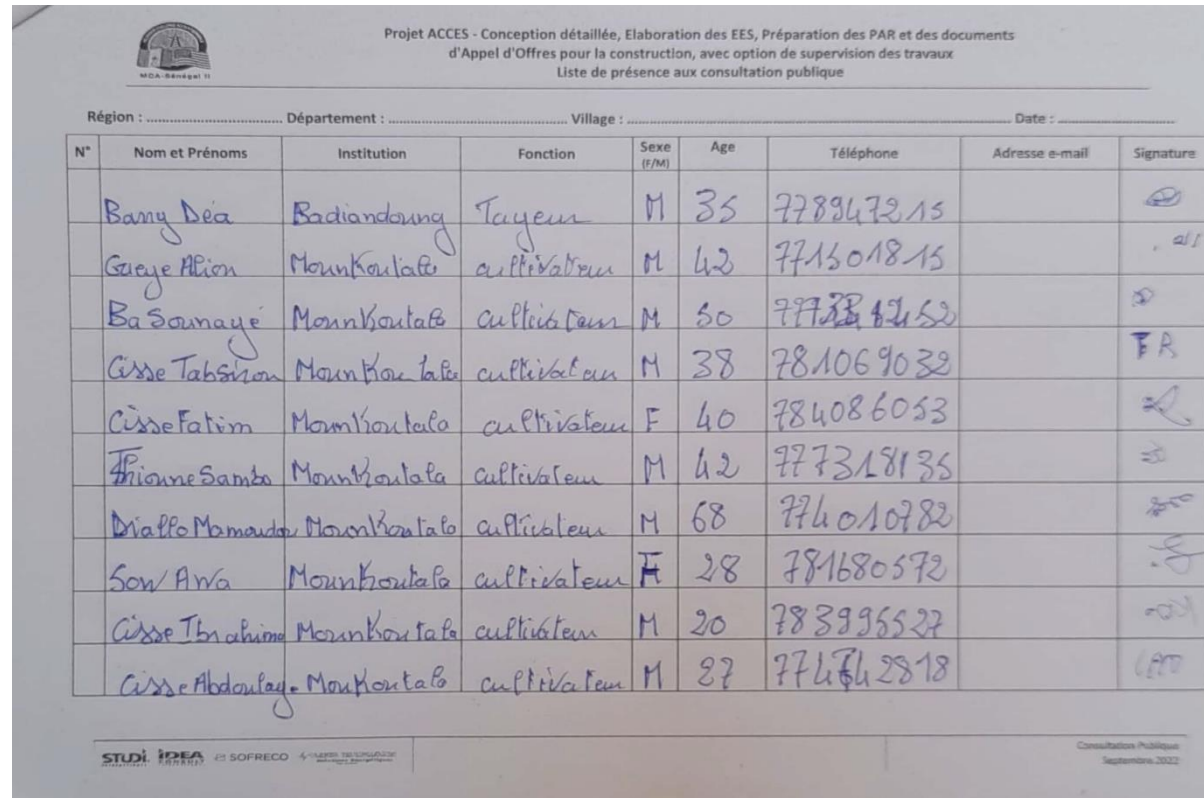 MCA-Sénégal II
Projet ACCES - Conception détaillée, Elaboration des EES, Préparation des PAR et des documents
d'Appel d'Offres pour la construction, avec option de supervision des travaux
Liste de présence aux consultation publique
Région : ................................ Département : ................................ Village : ................................ Date : ................................
N° Nom et Prénoms Institution Fonction Sexe (F/M) Age Téléphone Adresse e-mail Signature
Barry Déa Badiandoung Tayeur M 35 778947215
Gueye Alion Mounkoutala cultivateur M 42 771501815
Ba Sounayé Mounkoutala cultivateur M 50
Cisse Mounkoutala cultivateur M 38 781069032 FR
Cisse Fatim Mounkoutala cultivateur F 40 784086053
Thionne Sambo Mounkoutala cultivateur M 42 777318135
Diallo Mamoudou Mounkoutala cultivateur M 68 774010782
Sow Awa Mounkoutala cultivateur F 28 781680572
Cisse Ibrahima Mounkoutala cultivateur M 20 783996527
Cisse Abdoulaye Moukoutala cultivateur M 27
STUDI IDEA SOFRECO
Consultation Publique
Septembre 2022